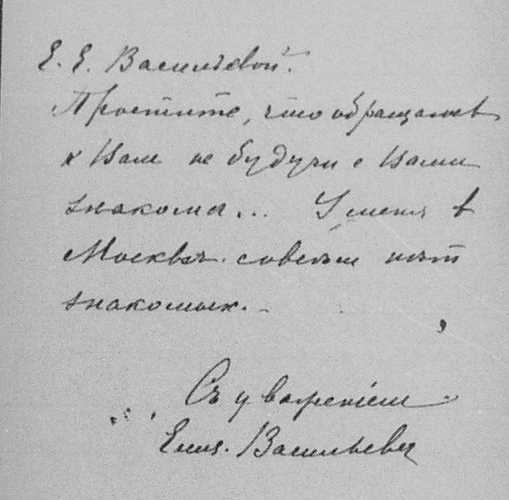 Е. Е. Васильевой.
Простите, что обращаюсь
к Вам не будучи с Вами
знакома... У меня в
Москвѣ совсѣм нѣт
знакомых. –
Съ уваженіем
Елиз. Васильева